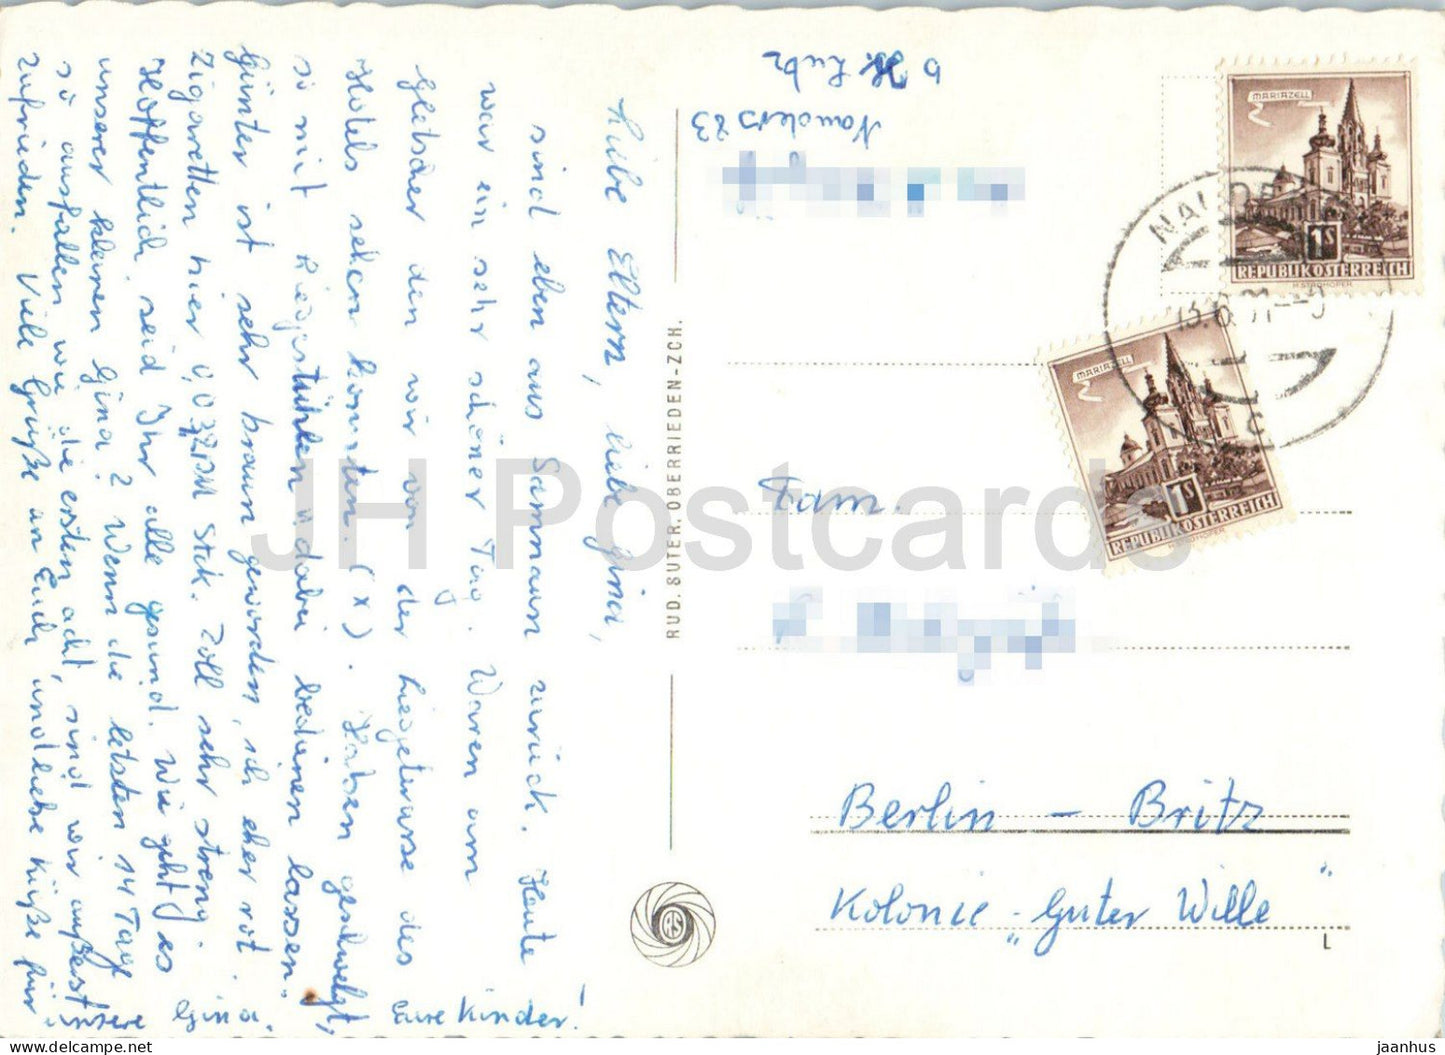 Liebe Eltern, liebe Gina,
sind eben aus Samnaun zurück. Heute
war ein sehr schöner Tag. Waren am
Gletscher den wir von der Liegewiese des
Hotels sehen konnten. (x). Haben geschwelgt,
so mit Liegestühlen u. dabei bedienen lassen.
Günter ist sehr braun geworden, ich eher rot.
Zigaretten hier Stck. Zoll sehr streng.
Hoffentlich seid Ihr alle gesund. Wie geht es
unserer kleinen Gina? Wenn die letzten 14 Tage
so ausfallen wie die ersten acht, sind wir äußerst
zufrieden. Viele Grüße an Euch und liebe Küße für
unsere Gina. Eure Kinder!
b
Nauders 83
RUD. SUTER, OBERRIEDEN-ZCH.
RS
MARIAZELL
1S
REPUBLIK ÖSTERREICH
H. STROHOFER
MARIAZELL
1S
REPUBLIK ÖSTERREICH
H. STROHOFER
Fam.
Berlin - Britz
Kolonie "Guter Wille"
L
JH Postcards
jaanhus delcampe.net